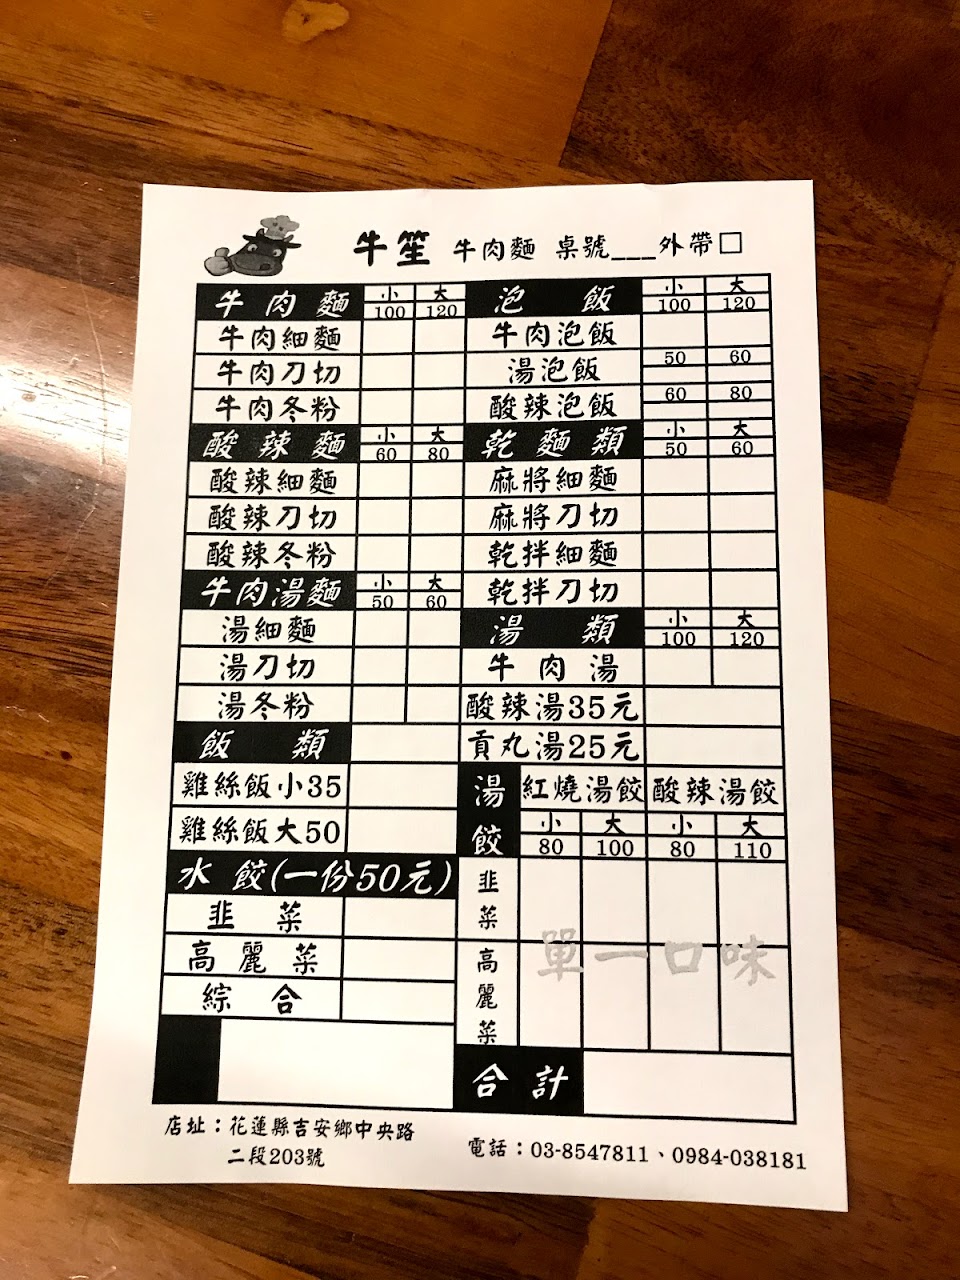 牛笙 牛肉麵 桌號___外帶□
牛肉麵 小 大
100 120
牛肉細麵
牛肉刀切
牛肉冬粉
酸辣麵 小 大
60 80
酸辣細麵
酸辣刀切
酸辣冬粉
牛肉湯麵 小 大
50 60
湯細麵
湯刀切
湯冬粉
飯類
雞絲飯小35
雞絲飯大50
水餃(一份50元)
韭菜
高麗菜
綜合
泡飯 小 大
100 120
牛肉泡飯
湯泡飯 50 60
酸辣泡飯 60 80
乾麵類 小 大
50 60
麻將細麵
麻將刀切
乾拌細麵
乾拌刀切
湯類 小 大
100 120
牛肉湯
酸辣湯35元
貢丸湯25元
湯餃 紅燒湯餃 酸辣湯餃
小 大 小 大
80 100 80 110
韭菜
高麗菜
單一口味
合計
店址：花蓮縣吉安鄉中央路
二段203號
電話：03-8547811、0984-038181